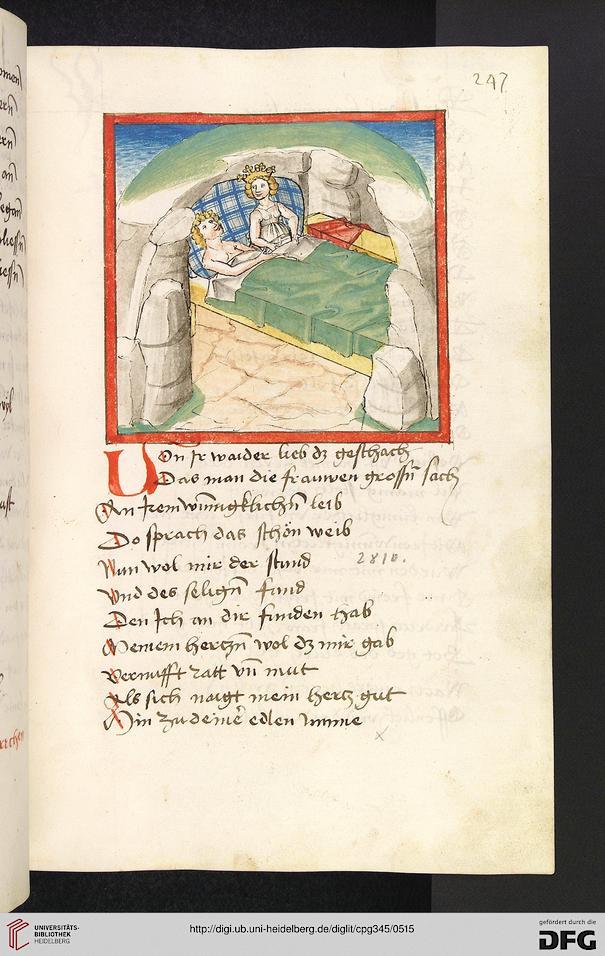 247
Von Jr waider lieb dz geschach
Das man die frauwen grossñ sach
An Jrem wuñigklichñ leib
Do sprach das schön weib
Nun wol mir der stund
2810.
Vnd des seligñ fund
Den Jch an dir funden hab
Meinem hertzñ wol dz mir gab
Vernufft ratt vñ mut
Als sich naigt mein hertz gut
Hin zu deiner edlen mine
UNIVERSITÄTS-
BIBLIOTHEK
HEIDELBERG
http://digi.ub.uni-heidelberg.de/diglit/cpg345/0515
gefördert durch die
DFG